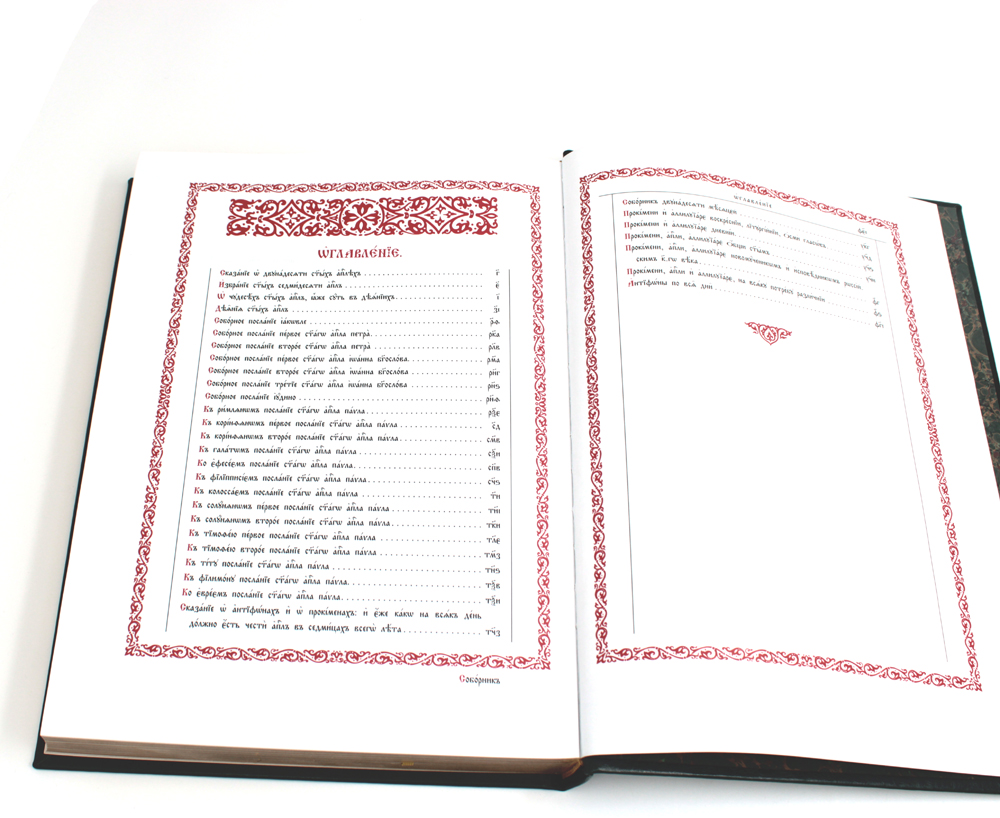 Ѡ҆главле́нїе.
Сказа́нїе ѡ҆ двꙋна́десѧти ст҃ы́хъ а҆п҃лѣхъ
И҆збра́нїе ст҃ы́хъ седми́десѧти а҆п҃лъ
Ѡ҆ чꙋдесѣ́хъ ст҃ы́хъ а҆п҃лъ, ꙗ҆̀же сꙋ́ть въ дѣѧ́нїихъ
Дѣѧ̑нїѧ ст҃ы́хъ а҆п҃лъ
Собо́рное посла́нїе і҆а́кѡвле
Собо́рное посла́нїе пе́рвое ст҃а́гѡ а҆п҃ла петра̀ рк҃а
Собо́рное посла́нїе второ́е ст҃а́гѡ а҆п҃ла петра̀ рл҃в
Собо́рное посла́нїе пе́рвое ст҃а́гѡ а҆п҃ла і҆ѡа́нна бг҃осло́ва. рм҃а
Собо́рное посла́нїе второ́е ст҃а́гѡ а҆п҃ла і҆ѡа́нна бг҃осло́ва рн҃г
Собо́рное посла́нїе тре́тїе ст҃а́гѡ а҆п҃ла і҆ѡа́нна бг҃осло́ва рн҃ѕ
Собо́рное посла́нїе і҆ꙋ́дино рн҃ѳ
Къ ри́млѧнѡмъ посла́нїе ст҃а́гѡ а҆п҃ла па́ѵла
Къ кори́нѳѧнѡмъ пе́рвое посла́нїе ст҃а́гѡ а҆п҃ла па́ѵла
Къ кори́нѳѧнѡмъ второ́е посла́нїе ст҃а́гѡ а҆п҃ла па́ѵла см҃в
Къ гала́тѡмъ посла́нїе ст҃а́гѡ а҆п҃ла па́ѵла
Ко є҆фесе́ємъ посла́нїе ст҃а́гѡ а҆п҃ла па́ѵла сп҃в
Къ фїлїпписі́ємъ посла́нїе ст҃а́гѡ а҆п҃ла па́ѵла сч҃ѕ
Къ колосса́ємъ посла́нїе ст҃а́гѡ а҆п҃ла па́ѵла
Къ солꙋ́нѧнѡмъ пе́рвое посла́нїе ст҃а́гѡ а҆п҃ла па́ѵла
Къ солꙋ́нѧнѡмъ второ́е посла́нїе ст҃а́гѡ а҆п҃ла па́ѵла тк҃и
Къ тїмоѳе́ю пе́рвое посла́нїе ст҃а́гѡ а҆п҃ла па́ѵла тл҃е
Къ тїмоѳе́ю второ́е посла́нїе ст҃а́гѡ а҆п҃ла па́ѵла тм҃з
Къ ті́тꙋ посла́нїе ст҃а́гѡ а҆п҃ла па́ѵла тн҃ѕ
Къ фїлимо́нꙋ посла́нїе ст҃а́гѡ а҆п҃ла па́ѵла. тѯ҃в
Ко є҆вре́ємъ посла́нїе ст҃а́гѡ а҆п҃ла па́ѵла тѯ҃и
Сказа́нїе ѡ҆ а҆нтїфѡ́нахъ и҆ ѡ҆ прокі́менахъ: и҆ є҆́же ка́кѡ на всѧ́къ де́нь
до́лжно є҆́сть честѝ а҆п҃лъ въ седми́цахъ всегѡ̀ лѣ́та тч҃з
Собо́рникъ
Ѡ҆главле́нїе
Собо́рникъ двꙋна́десѧти мѣ́сѧцей
Прокі́мени и҆ а҆ллилꙋїа́ре воскре́снїи, лїтꙋргі́йнїи, ѻ҆сми́ гласѡ́въ
Прокі́мени и҆ а҆ллилꙋїа́ре дне́внїи
Прокі́мени, а҆п҃ли, а҆ллилꙋїа́ре ѻ҆́бщїи ст҃ы̑мъ
Прокі́мени, а҆п҃ли, а҆ллилꙋїа́ре новомꙋ́ченикѡмъ и҆ и҆сповѣ́дникѡмъ рѡссі́й-
скимъ к҃.гѡ вѣ́ка
Прокі́мени, а҆п҃ли и҆ а҆ллилꙋїа́ре, на всѧ́кꙋ потре́бꙋ разли́чнїи
А҆нтїфѡ́ны по всѧ̑ дни̑